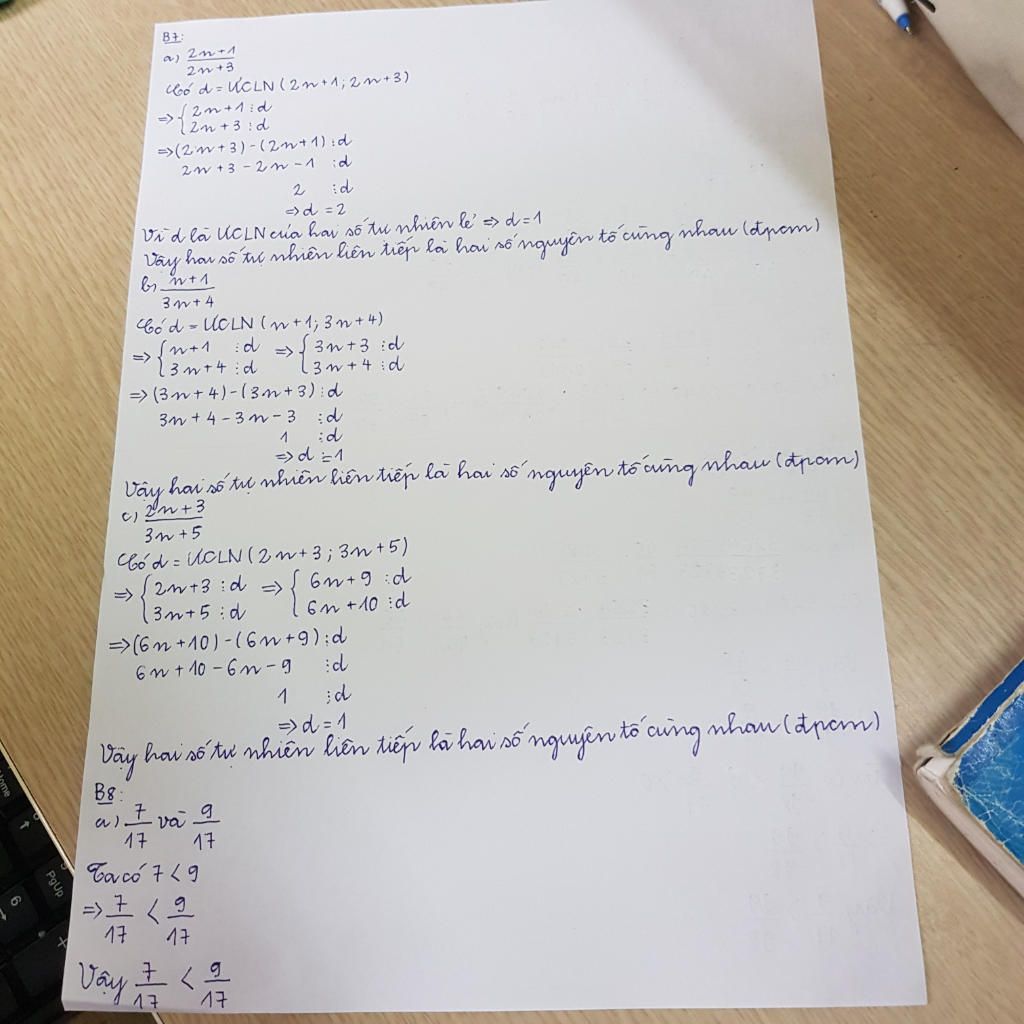 B7:
a) \frac{2n+1}{2n+3}
Có d = ƯCLN (2n+1; 2n+3)
=> { 2n+1 ⋮ d
2n+3 ⋮ d
=> (2n+3) - (2n+1) ⋮ d
2n+3-2n-1 ⋮ d
2 ⋮ d
=> d = 2
Vì d là ƯCLN của hai số tự nhiên lẻ => d=1
Vậy hai số tự nhiên liên tiếp là hai số nguyên tố cùng nhau (đpcm)
b) \frac{n+1}{3n+4}
Có d = ƯCLN (n+1; 3n+4)
=> { n+1 ⋮ d => { 3n+3 ⋮ d
3n+4 ⋮ d 3n+4 ⋮ d
=> (3n+4)-(3n+3) ⋮ d
3n+4-3n-3 ⋮ d
1 ⋮ d
=> d = 1
Vậy hai số tự nhiên liên tiếp là hai số nguyên tố cùng nhau (đpcm)
c) \frac{2n+3}{3n+5}
Có d = ƯCLN (2n+3; 3n+5)
=> { 2n+3 ⋮ d => { 6n+9 ⋮ d
3n+5 ⋮ d 6n+10 ⋮ d
=> (6n+10)-(6n+9) ⋮ d
6n+10-6n-9 ⋮ d
1 ⋮ d
=> d = 1
Vậy hai số tự nhiên liên tiếp là hai số nguyên tố cùng nhau (đpcm)
B8:
a) \frac{7}{17} và \frac{9}{17}
Ta có 7 < 9
=> \frac{7}{17} < \frac{9}{17}
Vậy \frac{7}{17} < \frac{9}{17}
Home
PgUp
6
+